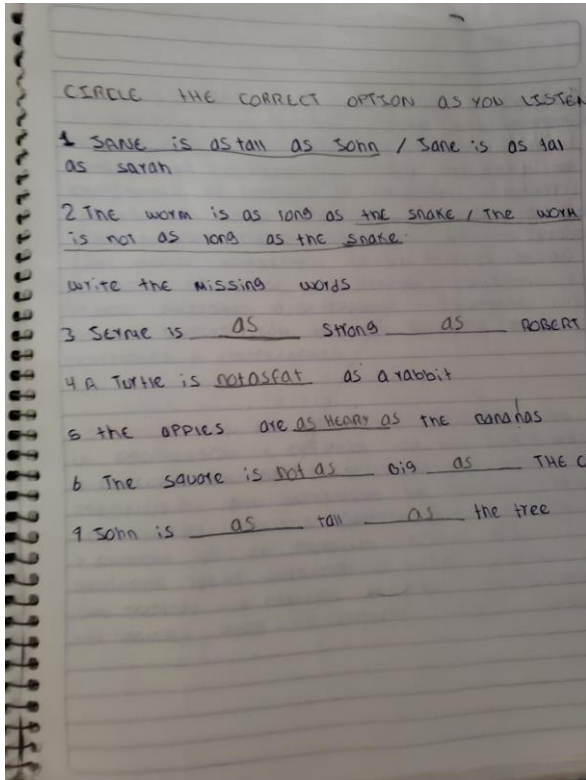 CIRCLE THE CORRECT OPTION as YOU LISTEN
1 JANE is as tall as John / Jane is as tal
as sarah
2 The worm is as long as the snake / The WORM
is not as long as the snake.
write the missing words
3 is as strong as ROBERT
4 A Turtle is not as fat as a rabbit
5 the apples are as HEAVY as the bananas
6 The square is not as big as THE C
9 John is as tall as the tree